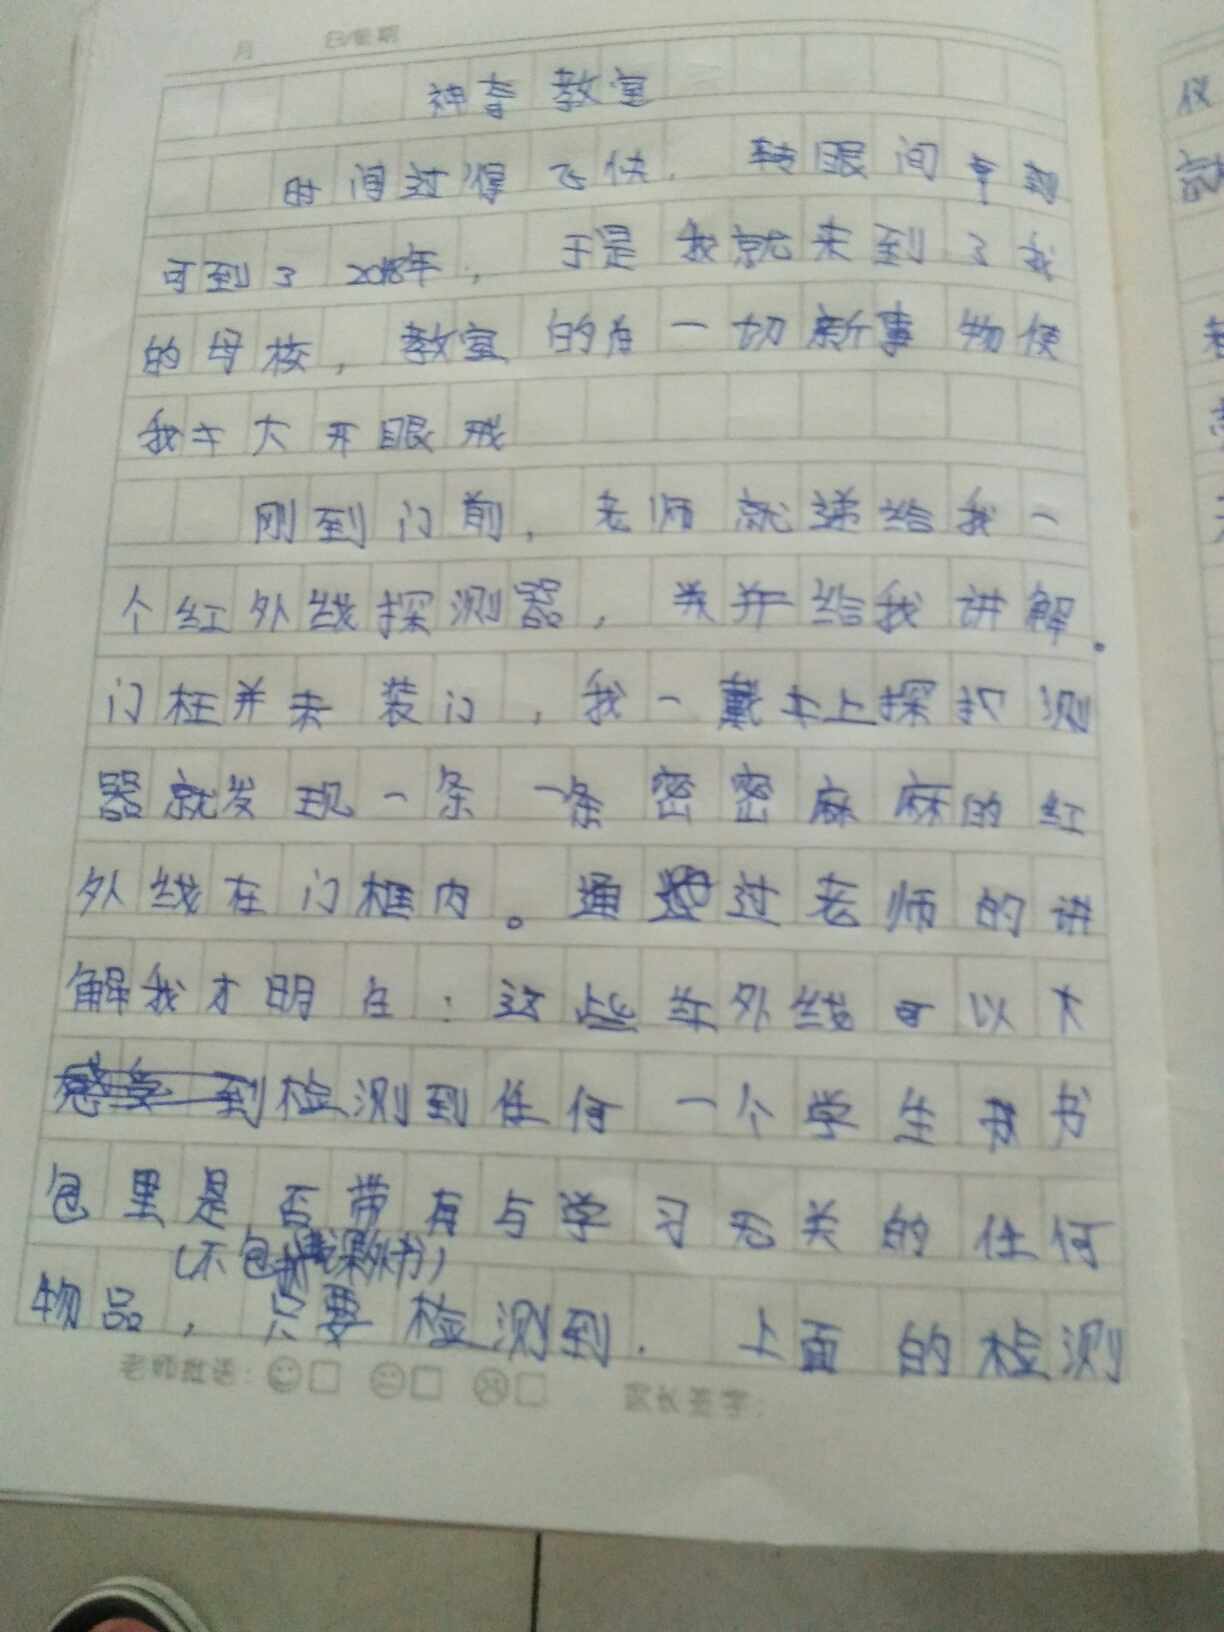 月 日/星期
神奇教室
时间过得飞快，转眼间
可到了 年，于是我就来到了我
的母校，教室的有一切新事物使
我大开眼戒
刚到门前，老师就递给我一
个红外线探测器，并给我讲解。
门框并未装门，我一戴上探测
器就发现一条一条密密麻麻的红
外线在门框内。通过老师的讲
解我才明白：这些外线可以
检测到任何一个学生书
包里是否带有与学习无关的任何
(不包括课外书)
物品，只要检测到．上面的检测
老师批语： 家长签字：
仪